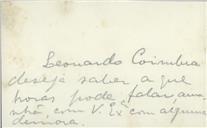 Leonardo Coimbra
deseja saber a que
horas pode falar, ama-
nhã, com V. Exª com alguma
demora.